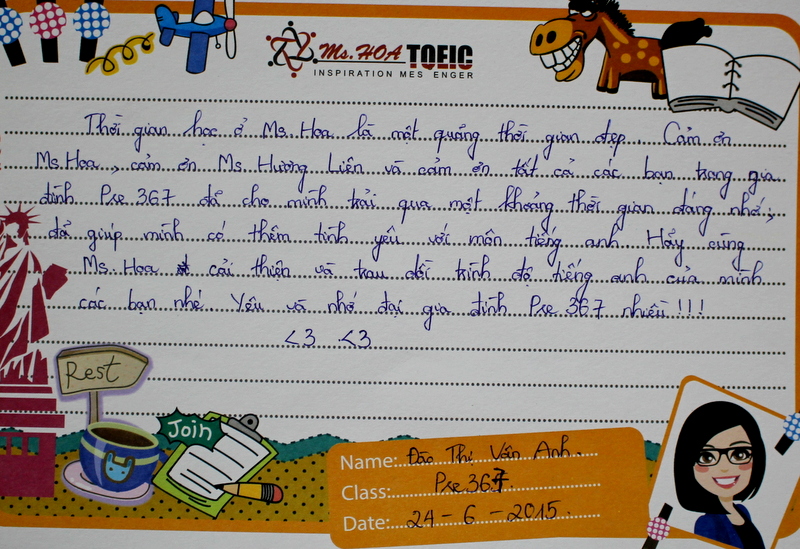 Ms. HOA TOEIC
INSPIRATION MES ENGER
Thời gian học ở Ms. Hoa là một quãng thời gian đẹp. Cảm ơn
Ms. Hoa, cảm ơn Ms. Hương Liên và cảm ơn tất cả các bạn trong gia
đình Pre 367 đã cho mình trải qua một khoảng thời gian đáng nhớ,
đã giúp mình có thêm tình yêu với môn tiếng anh. Hãy cùng
Ms. Hoa cải thiện và trau dồi trình độ tiếng anh của mình
các bạn nhé. Yêu và nhớ đại gia đình Pre 367 nhiều!!!
<3 <3
Rest
Join
Name: Đào Thị Vân Anh.
Class: Pre 367
Date: 24 - 6 - 2015.